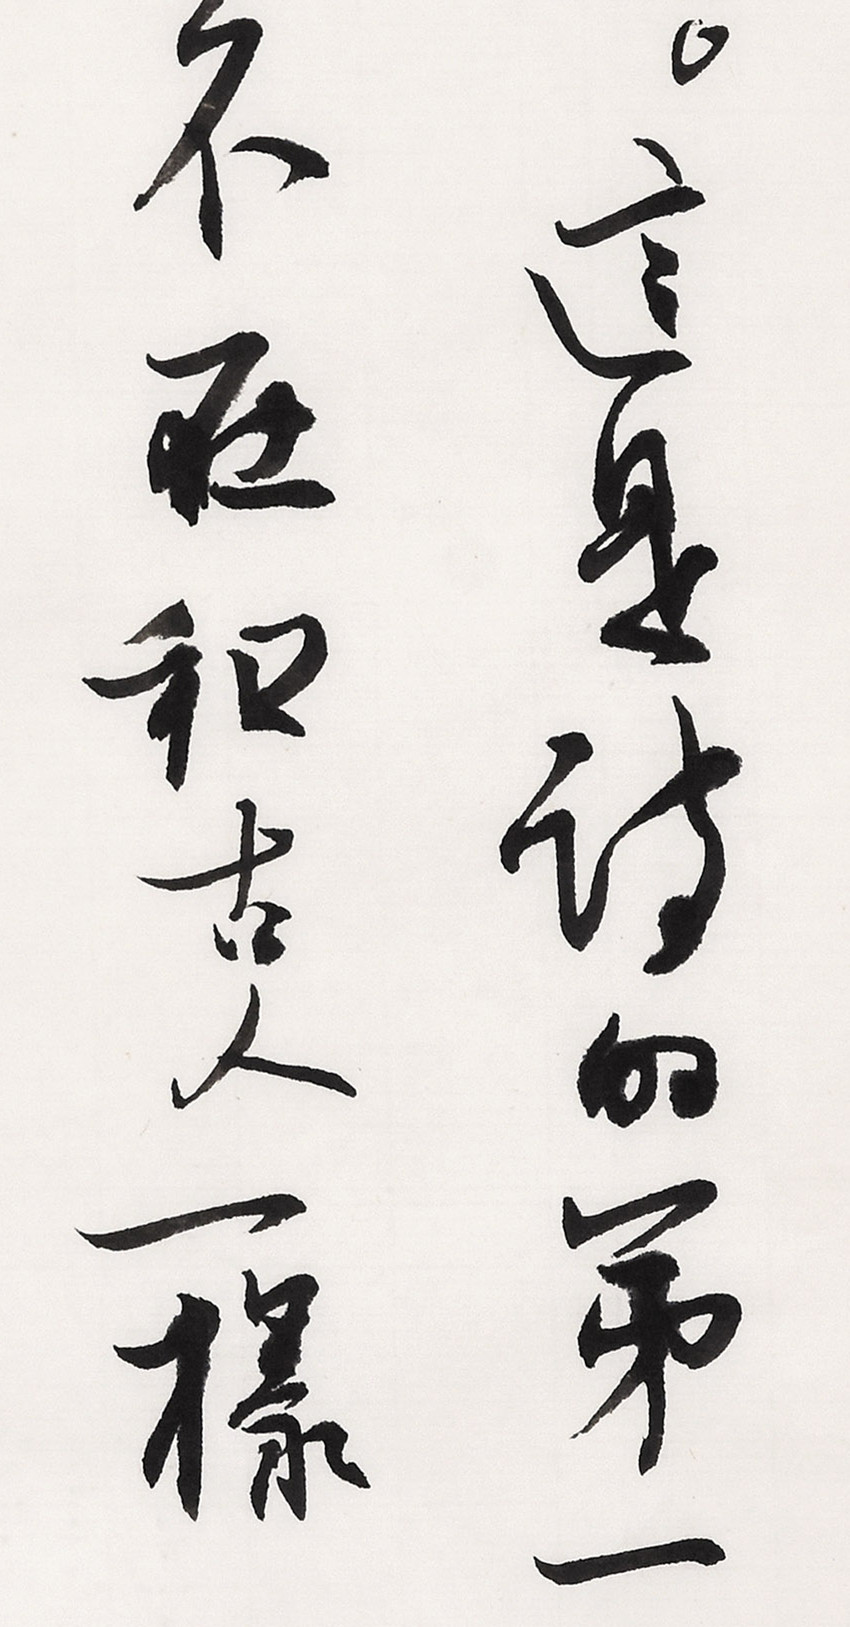 。這是詩的第一
不在和古人一樣